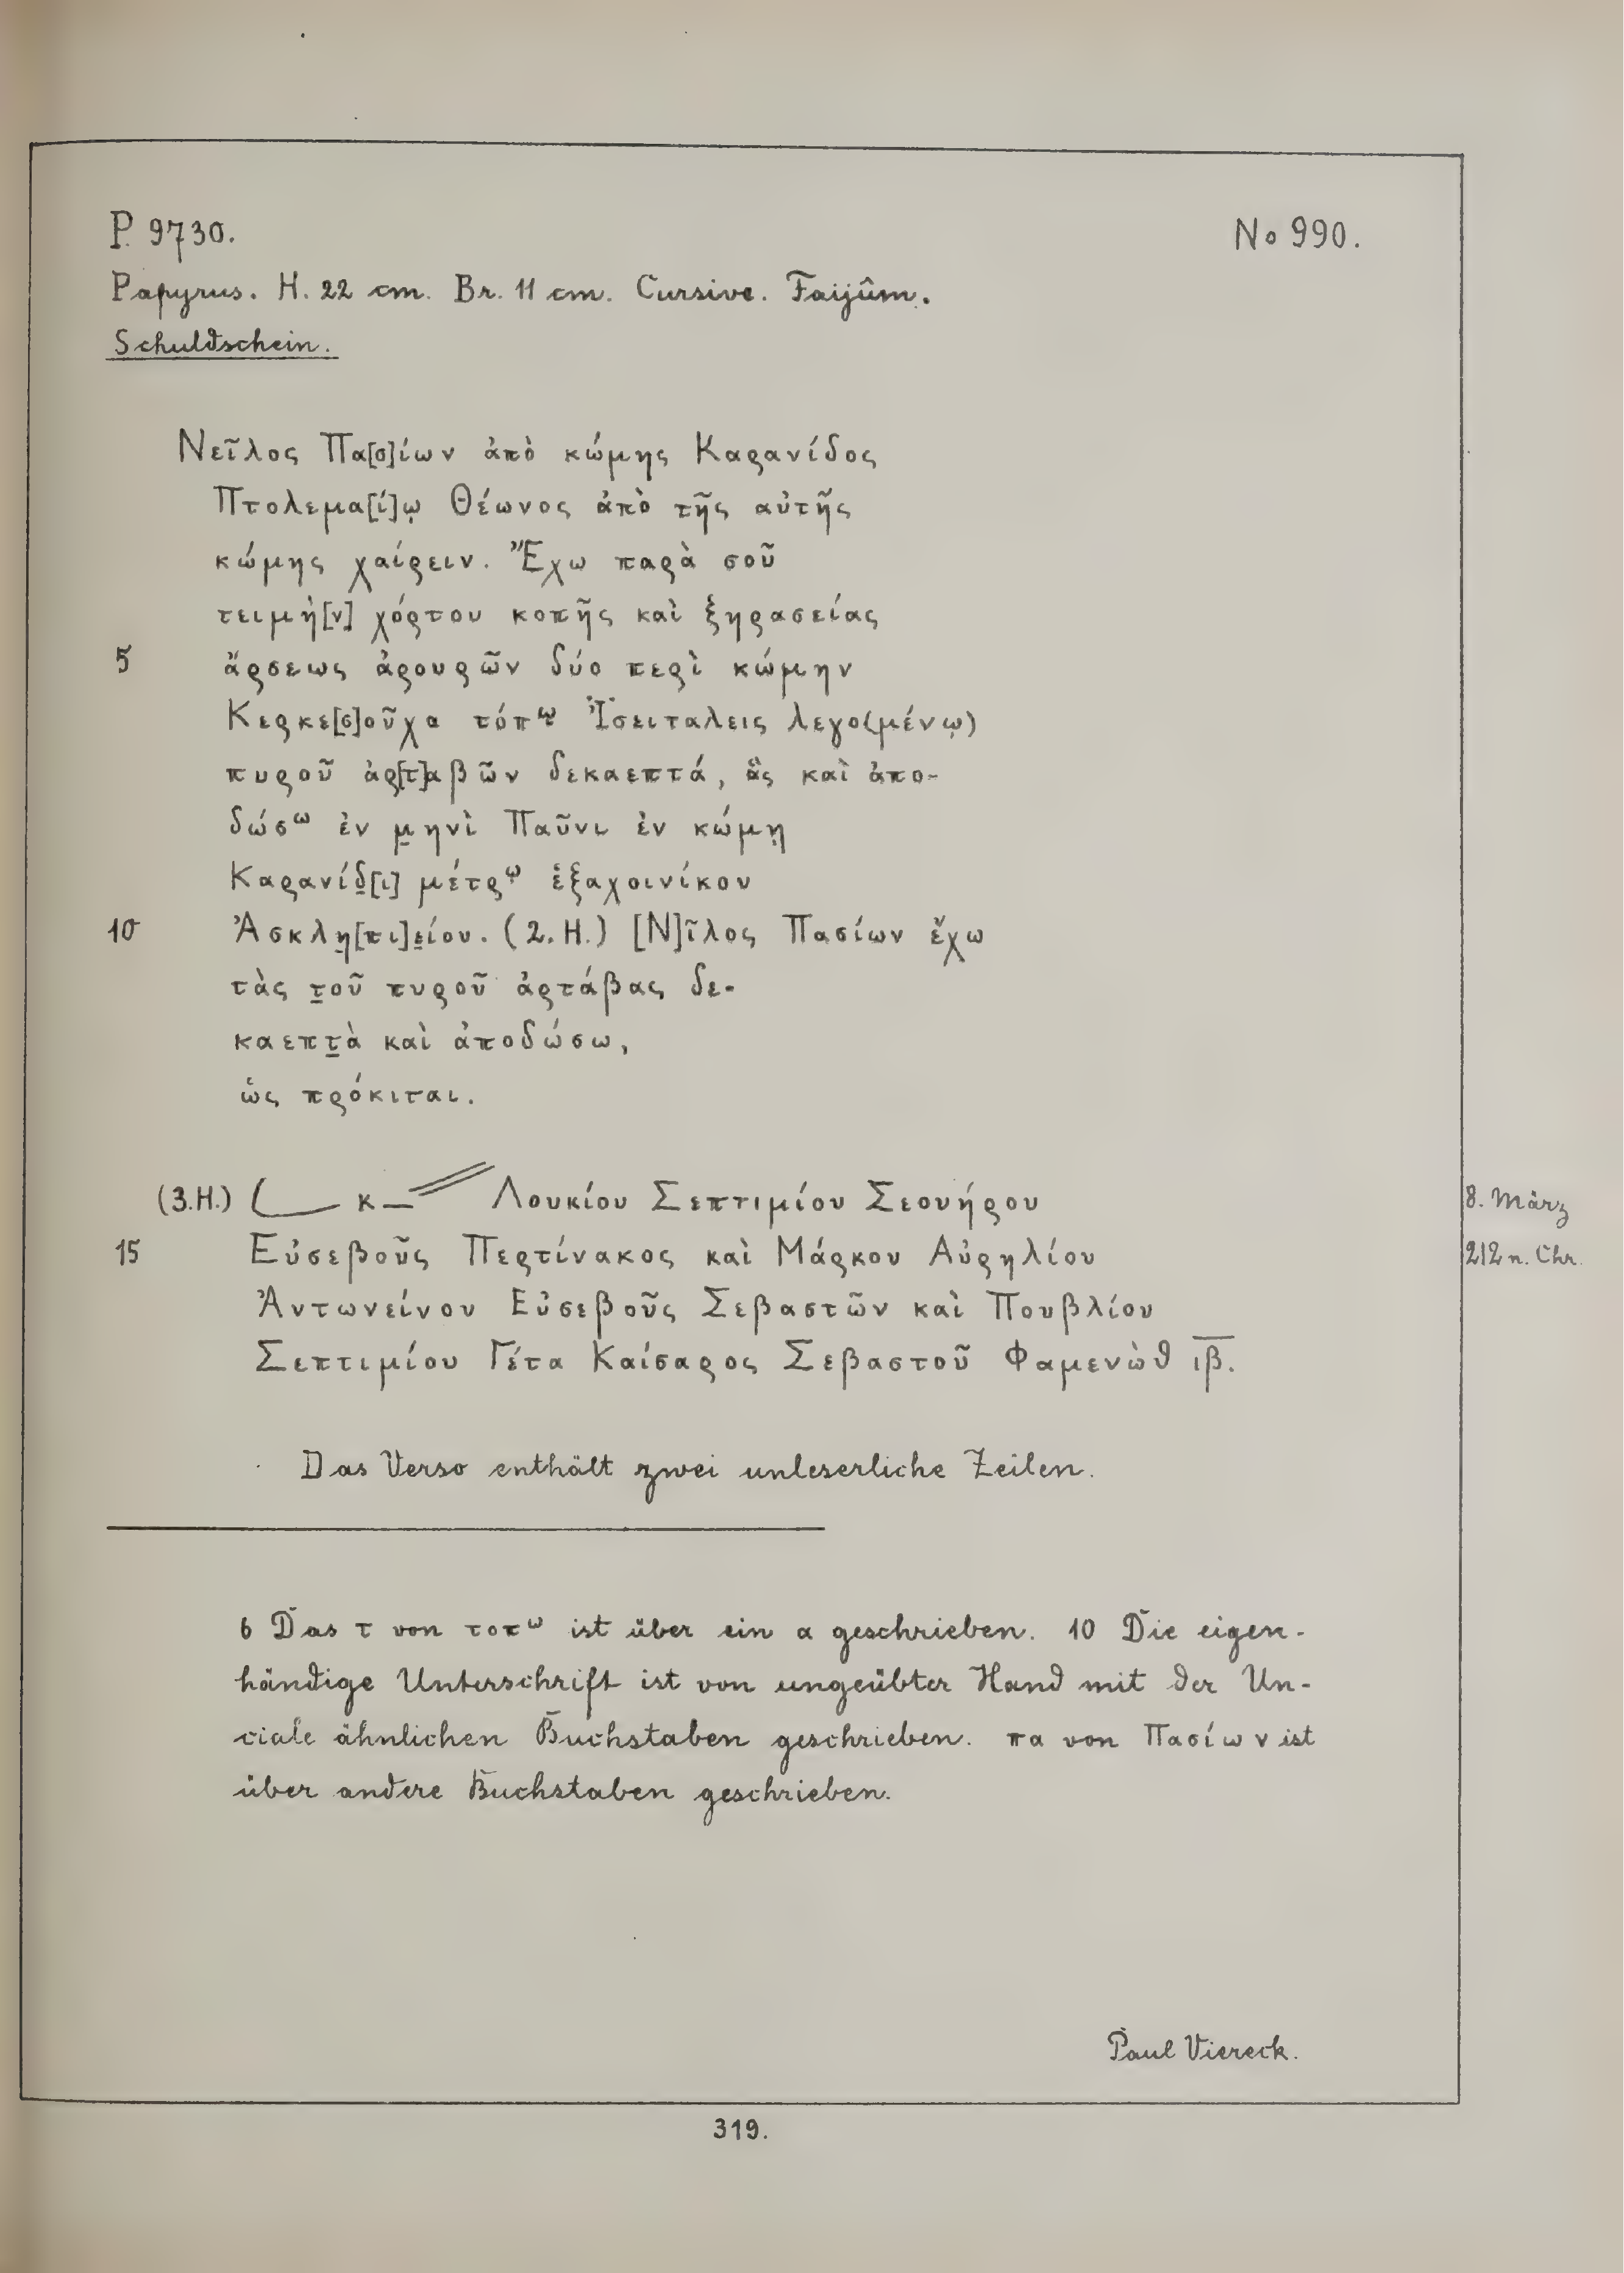 P. 9730. No 990.
Papyrus. H. 22 cm. Br. 11 cm. Cursive. Faijûm.
Schuldschein.
Νεῖλος Πα[σ]ίων ἀπὸ κώμης Καρανίδος
Πτολεμα[ί]ῳ Θέωνος ἀπὸ τῆς αὐτῆς
κώμης χαίρειν. Ἔχω παρὰ σοῦ
τειμὴ[ν] χόρτου κοπῆς καὶ ξηρασείας
5 ἄρσεως ἀρουρῶν δύο περὶ κώμην
Κερκε[σ]οῦχα τόπῳ Ἰσειταλεις λεγο(μένῳ)
πυροῦ ἀρ[τ]αβῶν δεκαεπτά, ἃς καὶ ἀπο-
δώσω ἐν μ̣ηνὶ Παῦνι ἐν κώμῃ
Καρανίδ̣[ι] μέτρῳ ἑξαχοινίκου
10 Ἀσκλη̣[πι]ε̣ίου. (2. H.) [Ν]ῖλος Πασίων ἔχω
τὰς τ̣οῦ πυροῦ ἀρτάβας δε-
καεπτ̣ὰ καὶ ἀποδώσω,
ὡς πρόκιται.
(3. H.) κ Λουκίου Σεπτιμίου Σεουήρου 8. März
15 Εὐσεβοῦς Περτίνακος καὶ Μάρκου Αὐρηλίου 212 n. Chr.
Ἀντωνείνου Εὐσεβοῦς Σεβαστῶν καὶ Πουβλίου
Σεπτιμίου Γέτα Καίσαρος Σεβαστοῦ Φαμενὼθ ιβ.
Das Verso enthält zwei unleserliche Zeilen.
6 Das τ von τοπω ist über ein α geschrieben. 10 Die eigen-
händige Unterschrift ist von ungeübter Hand mit der Un-
ciale ähnlichen Buchstaben geschrieben. πα von Πασίων ist
über andere Buchstaben geschrieben.
Paul Viereck.
319.